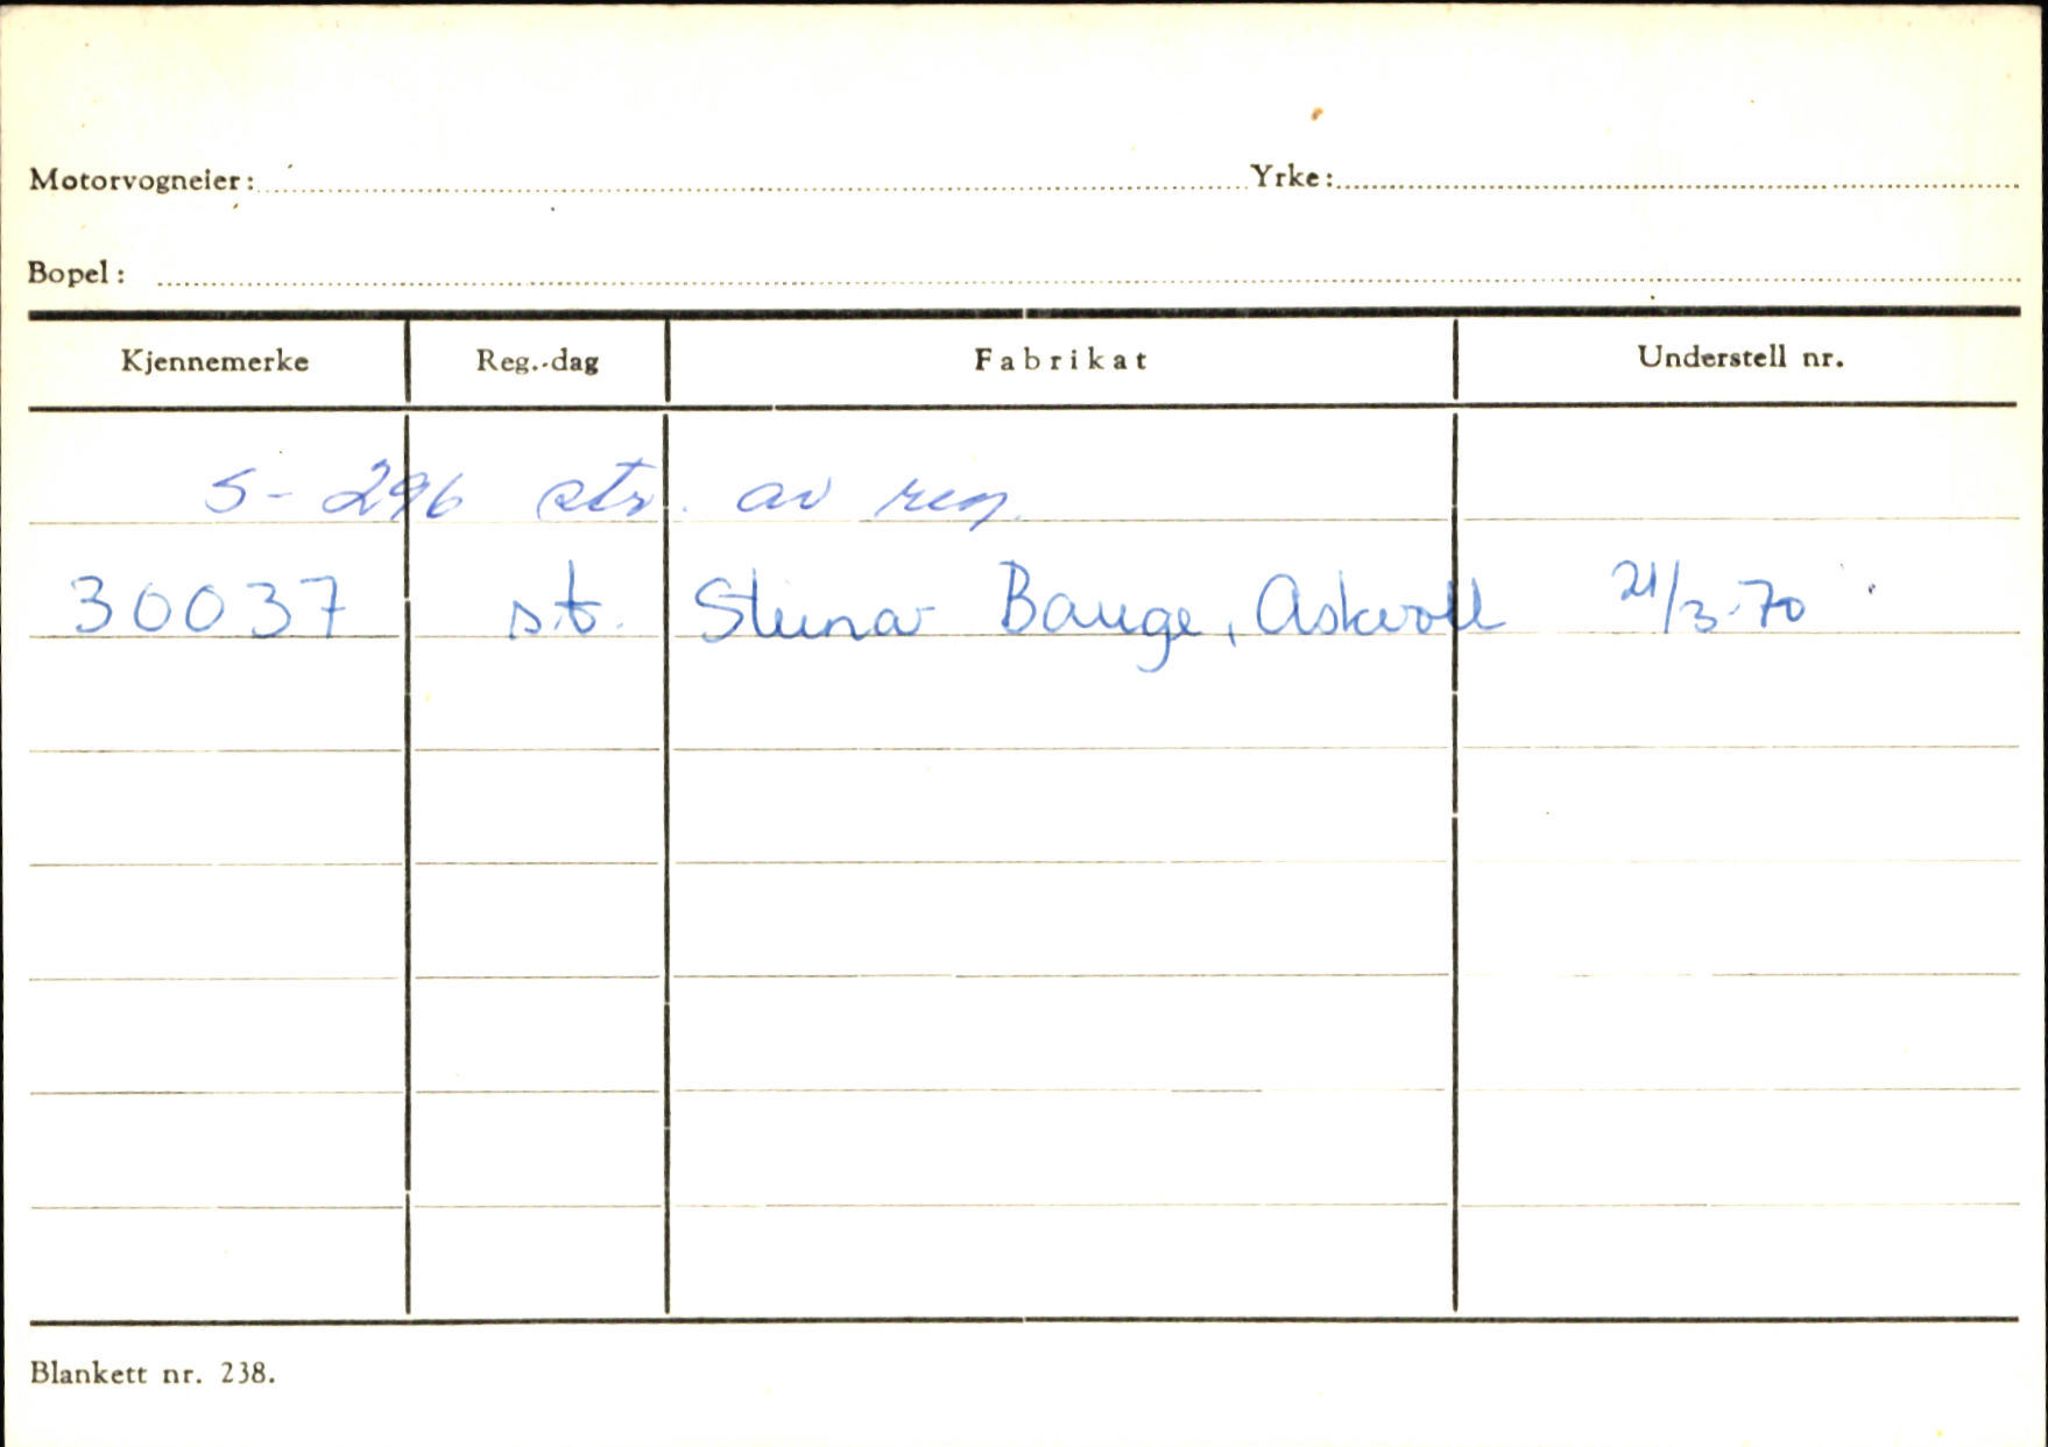 Motorvogneier: Yrke:
Bopel:
Kjennemerke Reg.-dag Fabrikat Understell nr.
S-296 str. av reg.
30037 s.t. Steinar Bauge, Askvoll 21/3-70
Blankett nr. 238.